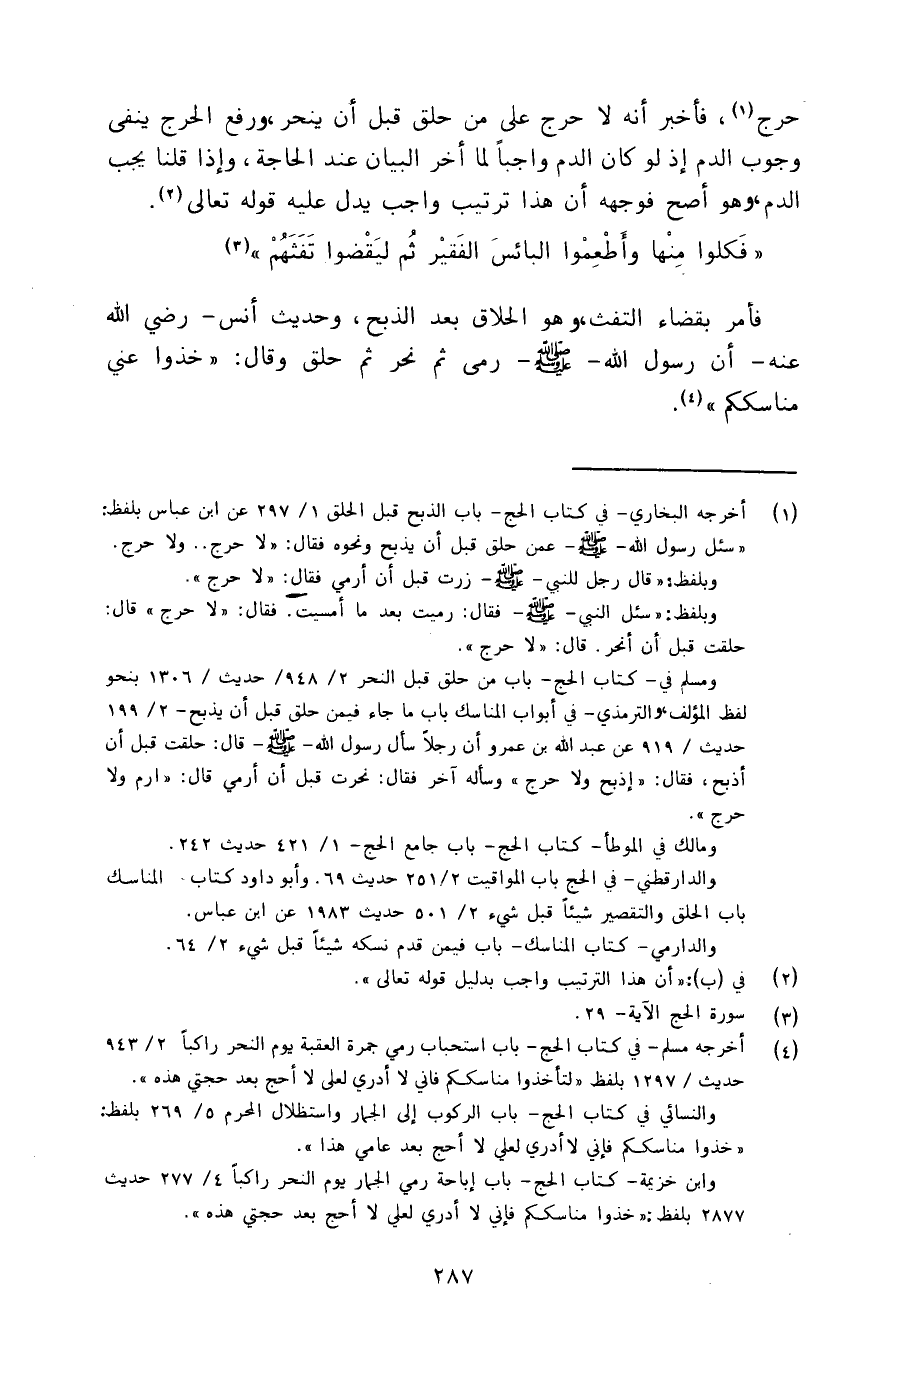 حرج(١)، فأخبر أنه لا حرج على من حلق قبل أن ينحر، ورفع الحرج ينفى
وجوب الدم إذ لو كان الدم واجباً لما أخر البيان عند الحاجة، وإذا قلنا يجب
الدم، وهو أصح فوجهه أن هذا ترتيب واجب يدل عليه قوله تعالى(٢).
« فَكلوا مِنْها وأَطْعِمْوا البائسَ الفَقيْر ثُم ليَقْضوا تَفَثَهُمْ »(٣)
فأمر بقضاء التفث، وهو الحلاق بعد الذبح، وحديث أنس- رضي الله
عنه- أن رسول الله- ﷺ- رمى ثم نحر ثم حلق وقال: « خذوا عني
مناسككم »(٤).
(١) أخرجه البخاري- في كتاب الحج- باب الذبح قبل الحلق ١/ ٢٩٧ عن ابن عباس بلفظ:
« سئل رسول الله- ﷺ- عمن حلق قبل أن يذبح ونحوه فقال: «لا حرج.. ولا حرج.
وبلفظ: « قال رجل للنبي- ﷺ- زرت قبل أن أرمي فقال: «لا حرج ».
وبلفظ: « سئل النبي- ﷺ- فقال: رميت بعد ما أمسيت. فقال: «لا حرج » قال:
حلقت قبل أن أنحر. قال: «لا حرج ».
ومسلم في- كتاب الحج- باب من حلق قبل النحر ٢/ ٩٤٨/ حديث / ١٣٠٦ بنحو
لفظ المؤلف، والترمذي- في أبواب المناسك باب ما جاء فيمن حلق قبل أن يذبح- ٢/ ١٩٩
حديث / ٩١٩ عن عبد الله بن عمرو أن رجلاً سأل رسول الله- ﷺ- قال: حلقت قبل أن
أذبح، فقال: « إذبح ولا حرج » وسأله آخر فقال: نحرت قبل أن أرمي قال: « ارم ولا
حرج ».
ومالك في الموطأ- كتاب الحج- باب جامع الحج- ١/ ٤٢١ حديث ٢٤٢.
والدارقطني- في الحج باب المواقيت ٢٥١/٢ حديث ٦٩. وأبو داود كتاب المناسك
باب الحلق والتقصير شيئاً قبل شيء ٢/ ٥٠١ حديث ١٩٨٣ عن ابن عباس.
والدارمي- كتاب المناسك- باب فيمن قدم نسكه شيئاً قبل شيء ٢/ ٦٤.
(٢) في (ب): « أن هذا الترتيب واجب بدليل قوله تعالى ».
(٣) سورة الحج الآية- ٢٩.
(٤) أخرجه مسلم- في كتاب الحج- باب استحباب رمي جمرة العقبة يوم النحر راكباً ٢/ ٩٤٣
حديث / ١٢٩٧ بلفظ «لتأخذوا مناسككم فاني لا أدري لعلى لا أحج بعد حجتي هذه ».
والنسائي في كتاب الحج- باب الركوب إلى الجمار واستظلال المحرم ٥/ ٢٦٩ بلفظ:
« خذوا مناسككم فإني لا أدري لعلي لا أحج بعد عامي هذا ».
وابن خزيمة- كتاب الحج- باب إباحة رمي الجمار يوم النحر راكباً ٤/ ٢٧٧ حديث
٢٨٧٧ بلفظ: « خذوا مناسككم فإني لا أدري لعلي لا أحج بعد حجتي هذه ».
٢٨٧